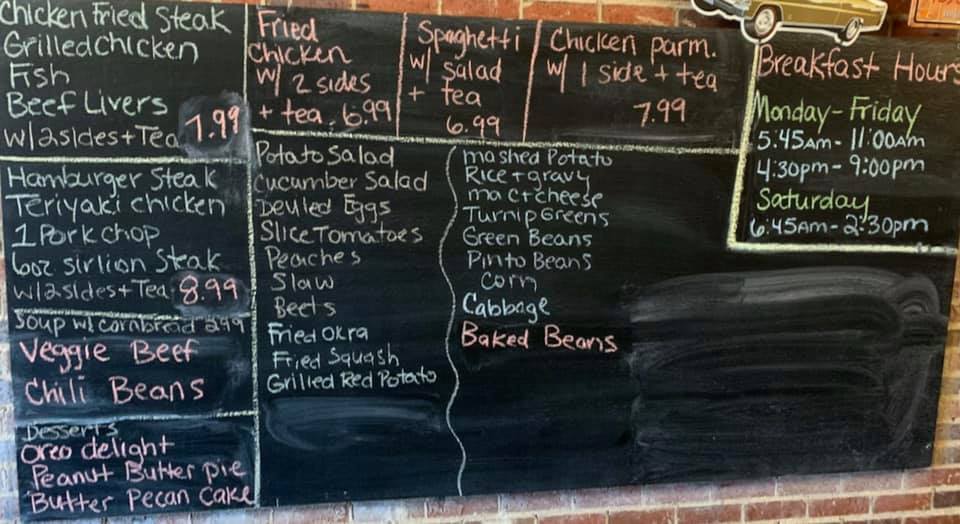 Chicken Fried Steak
Grilled chicken
Fish
Beef Livers
w/2sides+Tea 7.99
Hamburger Steak
Teriyaki chicken
1 Pork chop
6oz sirlion Steak
w/2sides+Tea 8.99
Soup w/ cornbread 2.99
Veggie Beef
Chili Beans
Desserts
Oreo delight
Peanut Butter pie
Butter Pecan Cake
Fried
Chicken
w/ 2 sides
+ tea. 6.99
Spaghetti
w/ Salad
+ tea
6.99
Chicken parm.
w/ 1 side + tea
7.99
Potato Salad
Cucumber Salad
Deviled Eggs
Slice Tomatoes
Peaches
Slaw
Beets
Fried Okra
Fried Squash
Grilled Red Potato
mashed Potato
Rice + gravy
mac + cheese
Turnip Greens
Green Beans
Pinto Beans
Corn
Cabbage
Baked Beans
Breakfast Hours
Monday - Friday
5:45AM - 11:00AM
4:30pm - 9:00pm
Saturday
6:45AM - 2:30pm